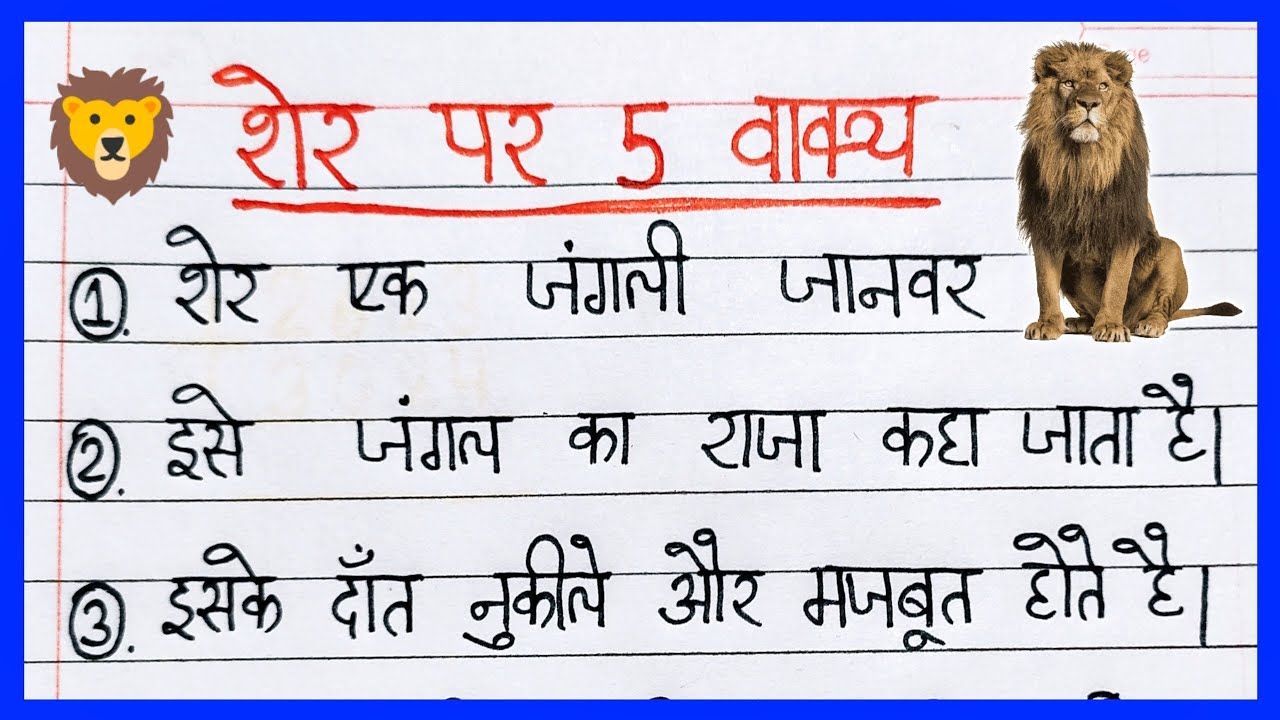 शेर पर 5 वाक्य
1. शेर एक जंगली जानवर
2. इसे जंगल का राजा कहा जाता है।
3. इसके दाँत नुकीले और मजबूत होते है।